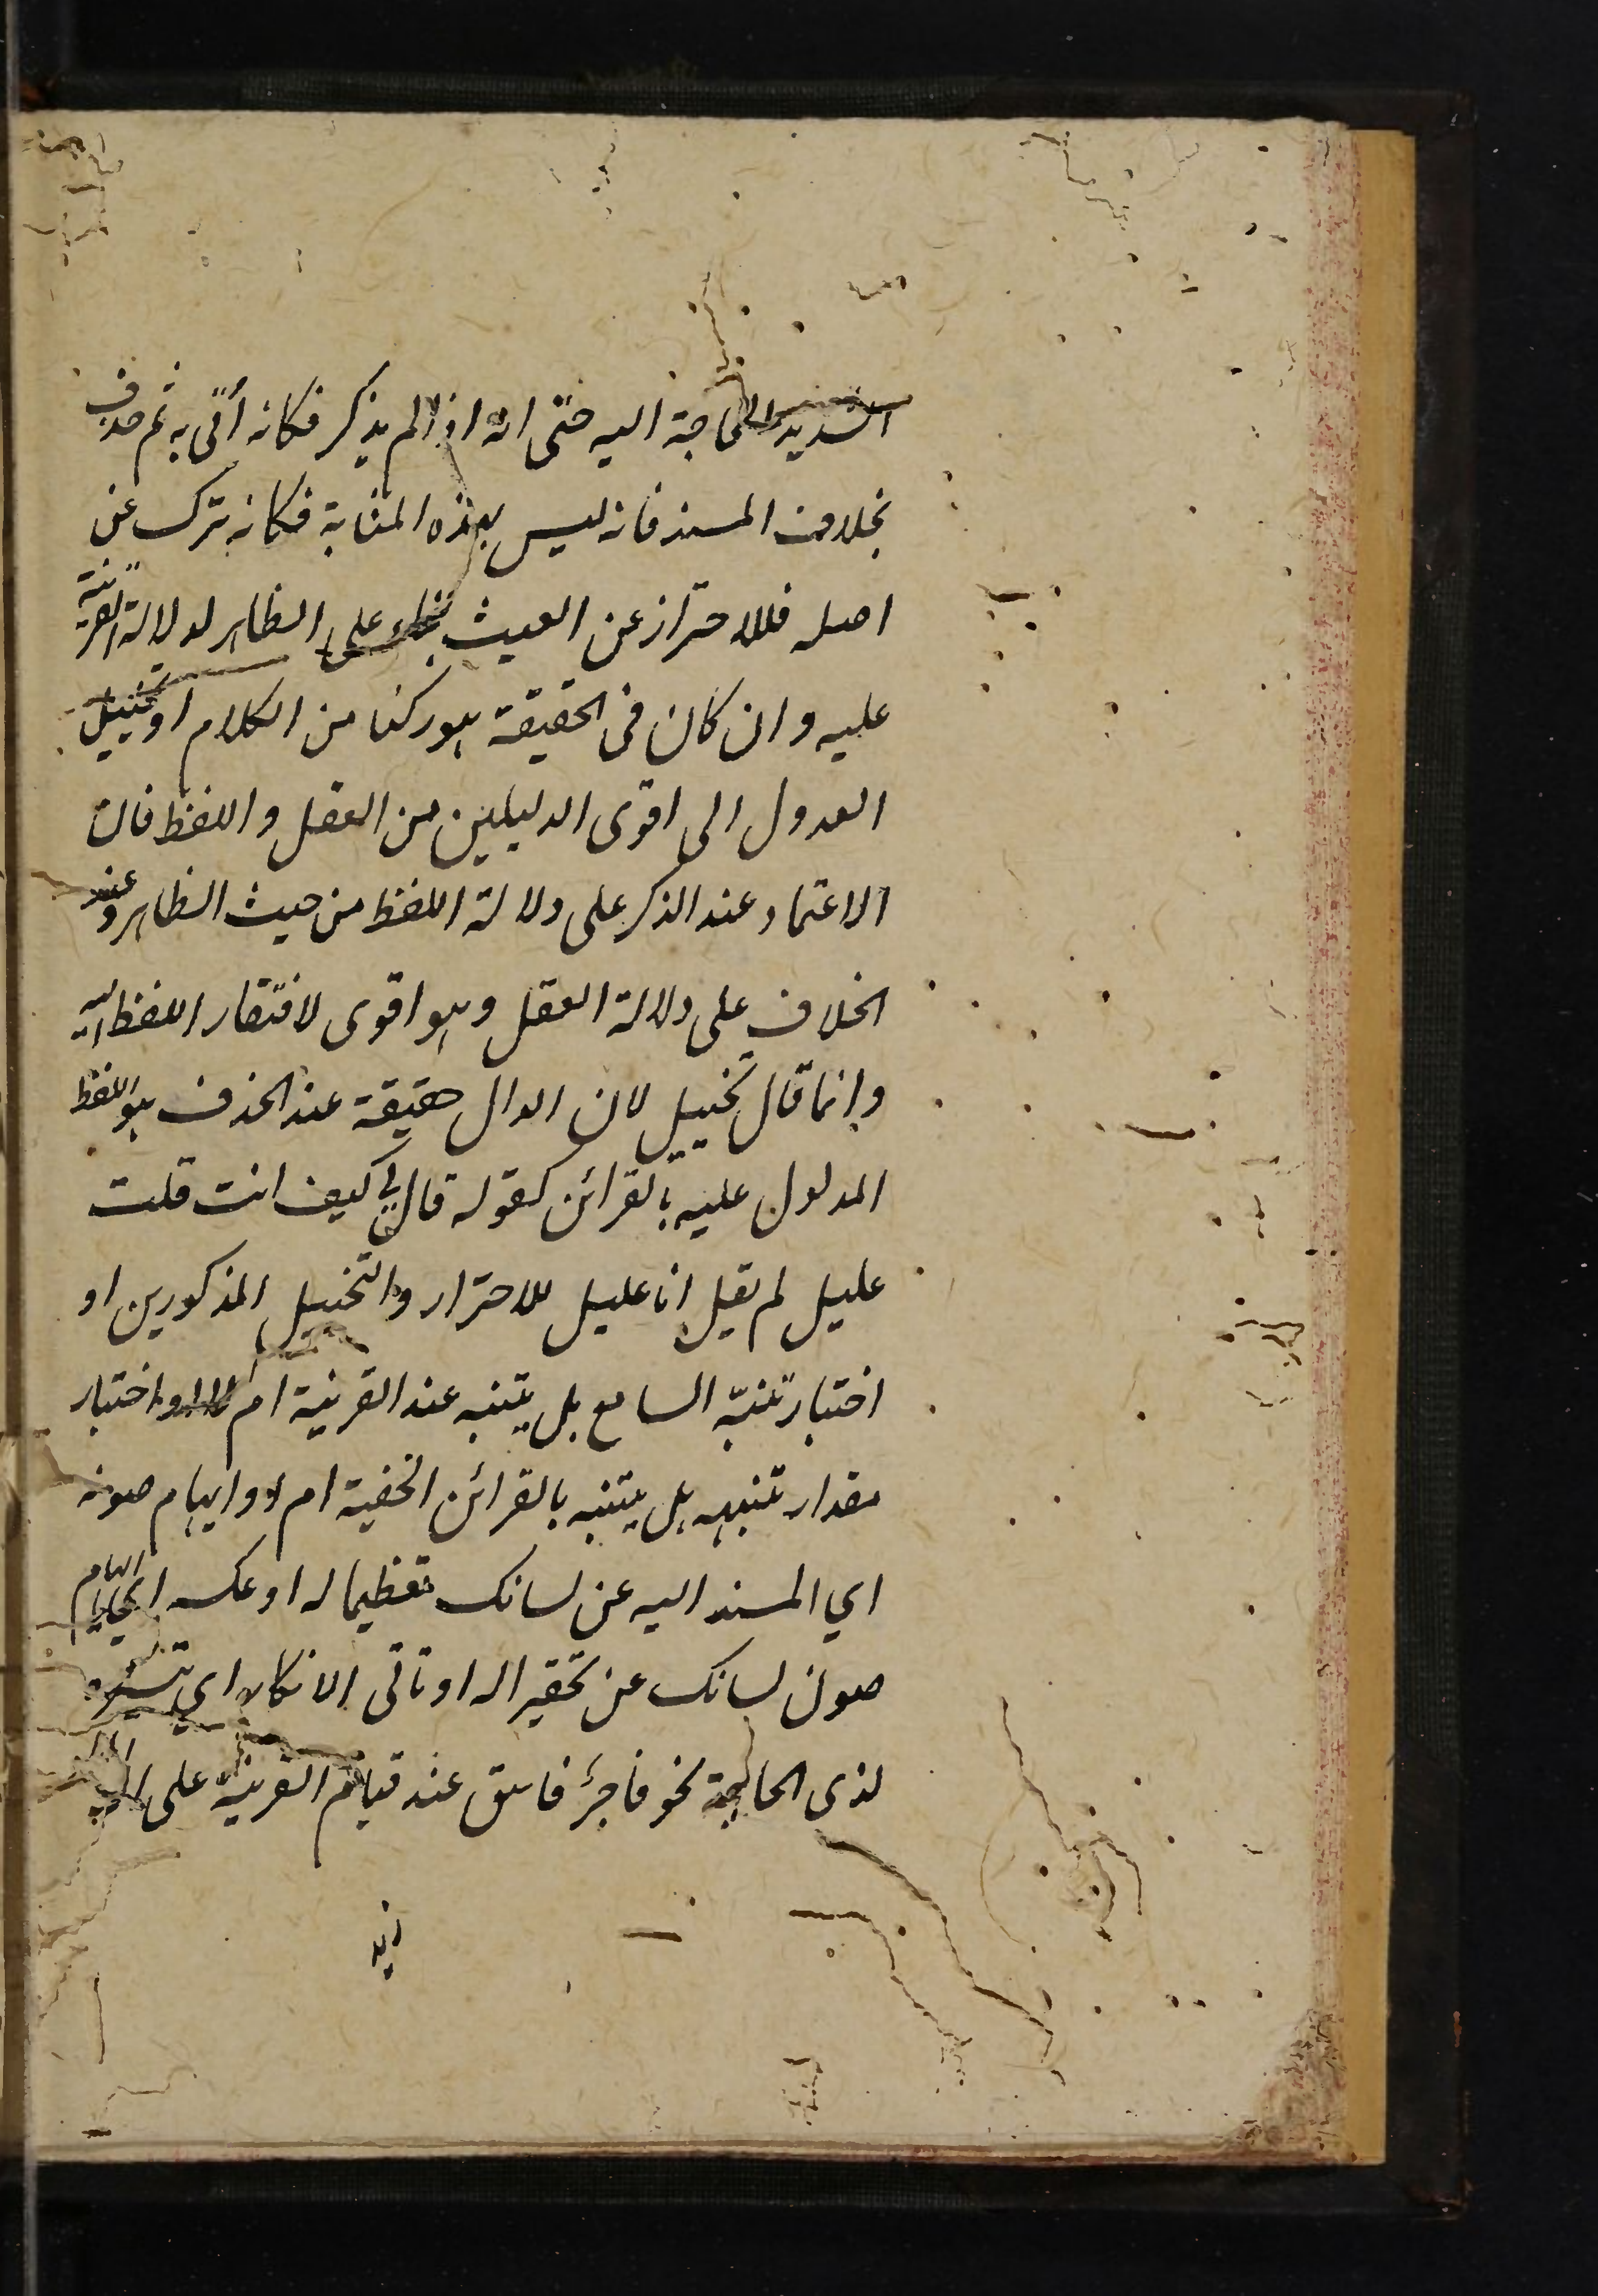 الشديد الحاجة اليه حتى انه اذا لم يذكر فكانه أُتي به ثم حذف
بخلاف المسند فانه ليس بهذه المثابة فكانه ترك عن
اصله فللاحتراز عن العبث بناء على الظاهر لدلالة القرينة
عليه وان كان فى الحقيقة هو ركنا من الكلام او تخييل
العدول الى اقوى الدليلين من العقل واللفظ فان
الاعتماد عند الذكر على دلالة اللفظ من حيث الظاهر وعند
الحذف على دلالة العقل وهو اقوى لافتقار اللفظ اليه
وانما قال تخييل لان الدال حقيقة عند الحذف هو اللفظ
المدلول عليه بالقرائن كقوله قال لي كيف انت قلت
عليل لم يقل انا عليل للاحتراز والتخييل المذكورين او
اختبار تنبّه السامع هل يتنبه عند القرينة ام لا او اختبار
مقدار تنبهه هل يتنبه بالقرائن الخفية ام لا او ايهام صونه
اي المسند اليه عن لسانك تعظيما له او عكسه اي ايهام
صون لسانك عن تحقيرا له او تاتى الانكار اي تيسره
لذى الحاجة نحو فاجر فاسق عند قيام القرينة على ان
زيد